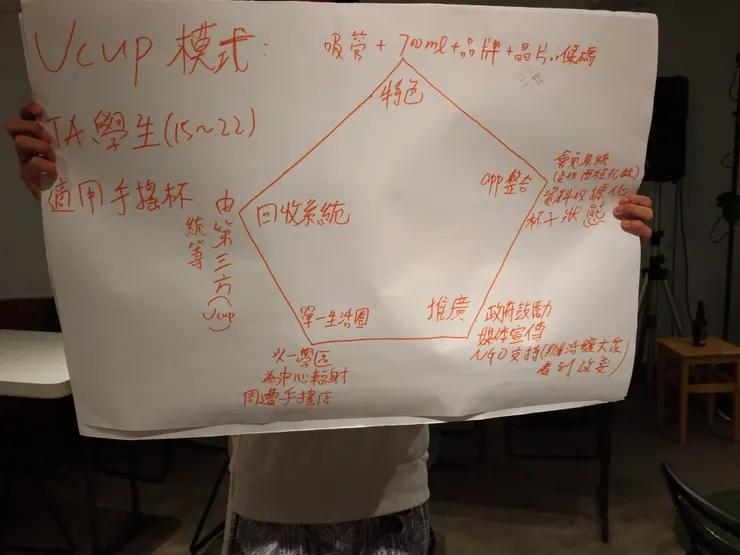 Ucup 模式:
吸管 + 700ml + 品牌 + 晶片 條碼
特色
TA 學生(15~22)
適用手搖杯
app 整合
會員系統
資料收據化
杯子狀態
回收系統
由第三方(Ucup)
統籌
單一生活圈
以一學區
為中心輻射
周遭手搖店
推廣
政府鼓勵
媒体宣傳
NGO支持(活讓大眾
看到改變)